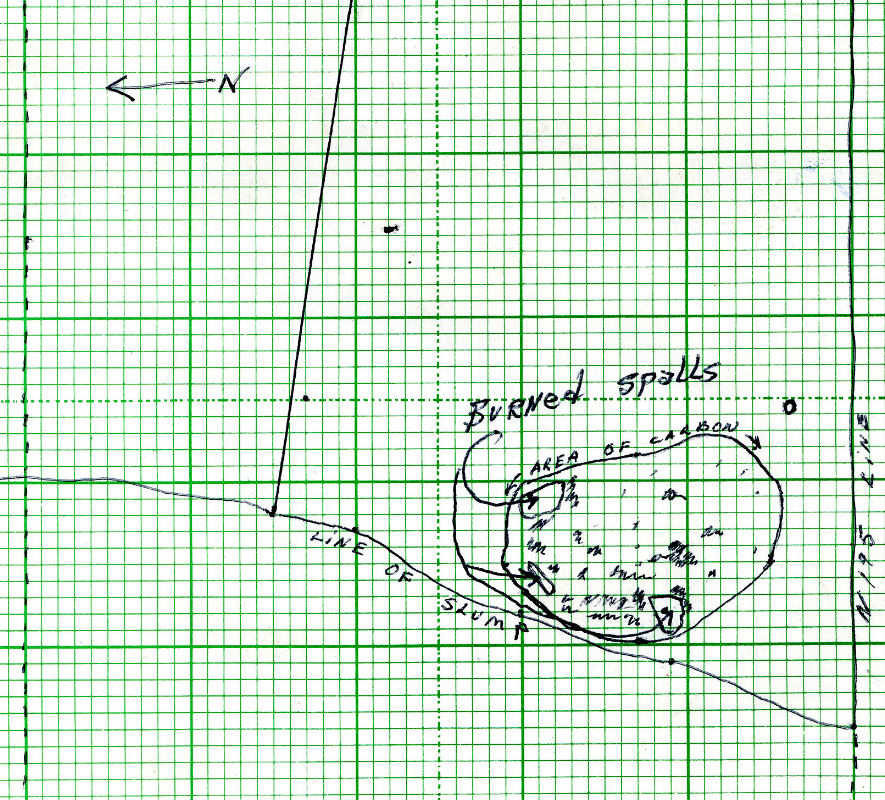 N
BURNed spalls
AREA OF CARBON
LINE OF SLUMP
N195 LINE